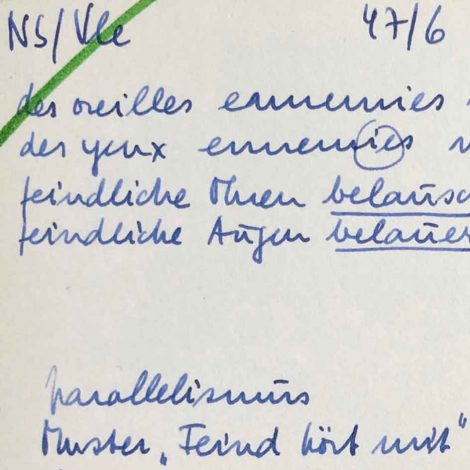 NS/Vle 47/6
des oreilles ennemies
des yeux ennemies
feindliche Ohren belausc
feindliche Augen belauer
parallelismus
Muster „Feind hört mit"